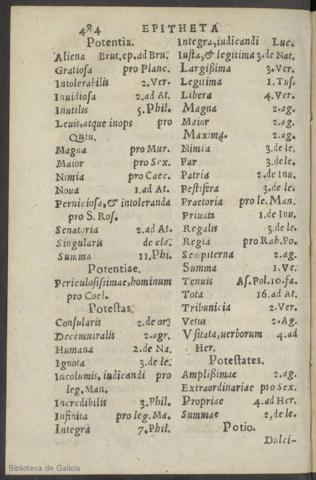 484 EPITHETA
Potentia.
Aliena Brut. ep. ad Bru.
Gratiosa pro Planc.
Intolerabilis 2. Ver.
Inuidiosa 2. ad At.
Inutilis 5. Phil.
Leuis, atque inops pro
Quin.
Magna pro Mur.
Maior pro Sex.
Nimia pro Caec.
Noua 1. ad At.
Perniciosa, & intoleranda
pro S. Ros.
Senatoria 2. ad At.
Singularis de cla.
Summa 11. Phi.
Potentiae.
Periculosissimae, hominum
pro Coel.
Potestas.
Consularis 2. de or
Decemuiralis 2. agr.
Humana 2. de Na.
Ignota 3. de le.
Incolumis, iudicandi pro
leg. Man.
Incredibilis 3. Phil.
Infinita pro leg. Ma.
Integra 7. Phil.
Integra, iudicandi Luc.
Iusta, & legitima 3. de Nat.
Largißima 3. Ver.
Legitima 1. Tus.
Libera 4. Ver.
Magna 2. ag.
Maior 2. ag.
Maxima. 2. ag.
Nimia 3. de le.
Par 3. de le.
Patria 2. de Inu.
Pestifera 3. de le.
Praetoria pro le. Man.
Priuata 1. de Inu.
Regalis 3. de le.
Regia pro Rab. Po.
Sempiterna 2. ag.
Summa 1. Ve.
Tenuis As. Pol. 10. fa.
Tota 16. ad At.
Tribunicia 2. Ver.
Vetus 2. Ag.
Vsitata, uerborum 4. ad
Her.
Potestates.
Amplißimae 2. ag.
Extraordinariae pro Sex.
Propriae 4. ad Her.
Summae 2. de le.
Potio.
Dulci-
Biblioteca de Galicia